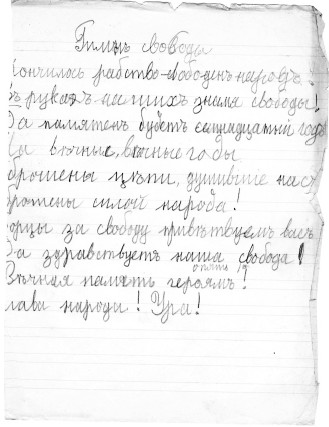 Гимнъ свободы
Кончилось рабство – свободенъ народъ!
Въ рукахъ нашихъ знамя свободы!
Да памятенъ будетъ семнадцатый годъ
На вѣчные, вѣчные годы
брошены цѣпи, душившіе насъ
силой народа!
орцы за свободу привѣтствуемъ васъ
Да здравствуетъ наша свобода!
Вѣчная память героямъ!
лава народу! Ура!